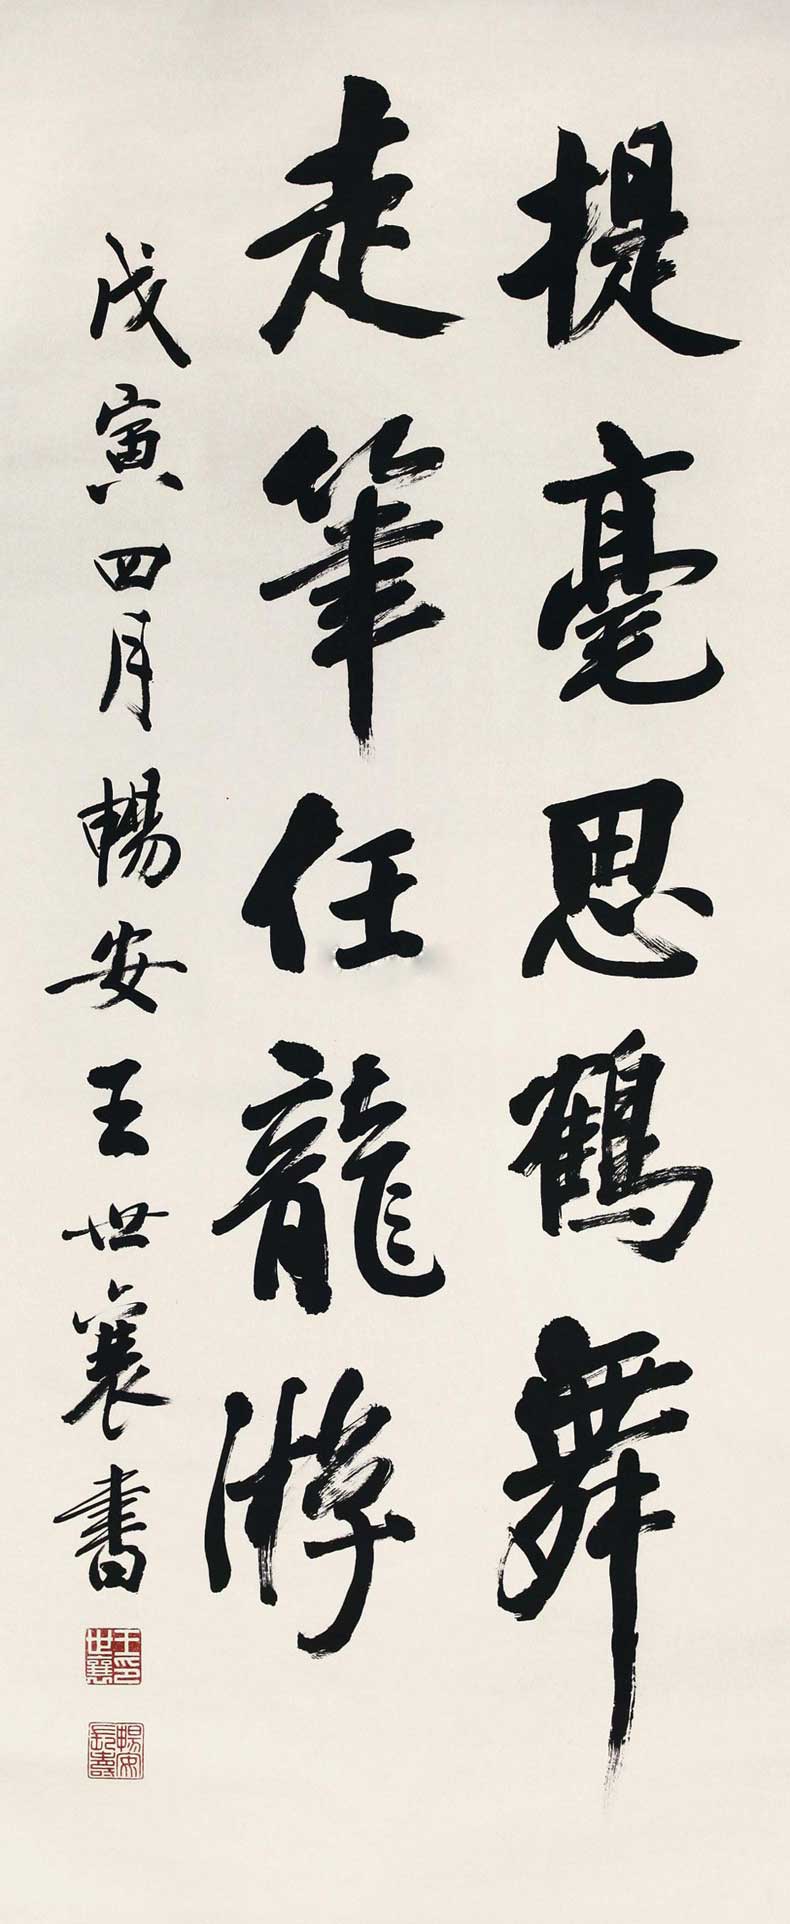 提毫思鶴舞
走筆任龍游
戊寅四月暢安王世襄書
王世襄印
暢安長壽